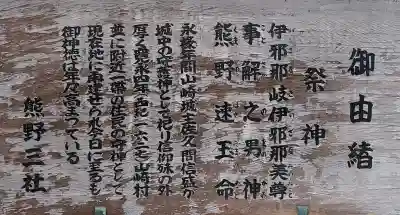 御由緒
祭神
伊邪那岐伊邪那美尊
事解之男神
熊野速玉命
永禄年間山崎城主佐久間信盛が
城中の守護神として祀り信仰殊の外
厚く
山崎村
並に附近一帯の住民の守神として
現在地に再建せられ今日に至るも
御神徳は年々高まっている
熊野三社